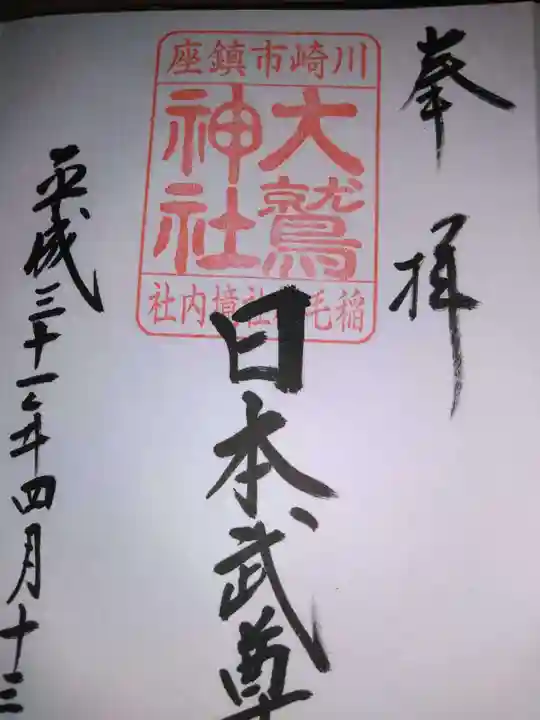 奉拝
川崎市鎮座
大鷲
神社
稲毛神社境内社
日本武尊
平成三十一年四月十三